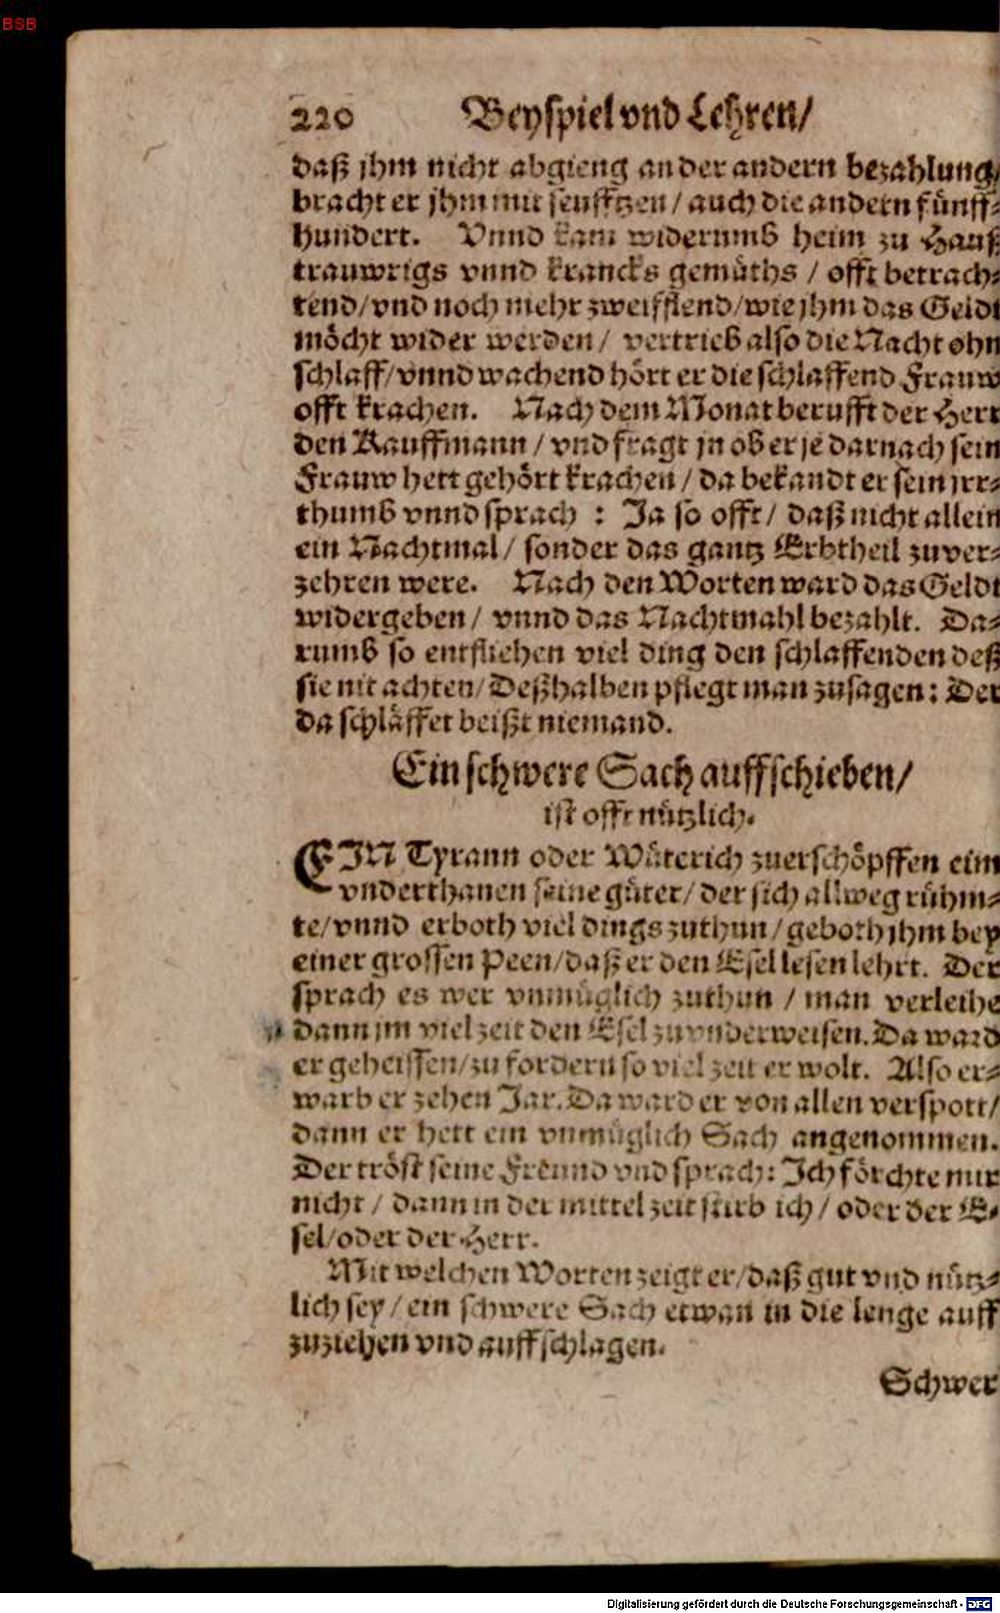 BSB
220 Beyspiel vnd Lehren/
daß jhm nicht abgieng an der andern bezahlung/
bracht er jhm mit seufftzen / auch die andern fünff-
hundert. Vnnd kam widerumb heim zu Hauß
trauwrigs vnnd krancks gemüths / offt betrach-
tend/vnd noch mehr zweifflend/wie jhm das Geldt
möcht wider werden / vertrieb also die Nacht ohn
schlaff/vnnd wachend hört er die schlaffend Frauw
offt krachen. Nach dem Monat berufft der Herr
den Kauffmann / vnd fragt jn ob er je darnach sein
Frauw hett gehört krachen / da bekandt er sein jrr-
thumb vnnd sprach : Ja so offt / daß nicht allein
ein Nachtmal / sonder das gantz Erbtheil zuver-
zehren were. Nach den Worten ward das Geldt
widergeben / vnnd das Nachtmahl bezahlt. Da-
rumb so entfliehen viel ding den schlaffenden deß
sie nit achten/Deßhalben pflegt man zusagen: Der
da schläffet beißt niemand.
Ein schwere Sach auffschieben/
ist offt nützlich.
EIN Tyrann oder Wüterich zuerschöpffen eim
vnderthanen seine güter/ der sich allweg rühm-
te/vnnd erboth viel dings zuthun / geboth jhm bey
einer grossen Peen/daß er den Esel lesen lehrt. Der
sprach es wer vnmüglich zuthun / man verleihe
dann jm viel zeit den Esel zu vnderweisen. Da ward
er geheissen/zu fordern so viel zeit er wolt. Also er-
warb er zehen Jar. Da ward er von allen verspott/
dann er hett ein vnmüglich Sach angenommen.
Der tröst seine Freünd vnd sprach: Ich förchte mir
nicht / dann in der mittel zeit stirb ich / oder der E-
sel/oder der Herr.
Mit welchen Worten zeigt er/daß gut vnd nütz-
lich sey / ein schwere Sach etwan in die lenge auff
zuziehen vnd auffschlagen.
Schwer
Digitalisierung gefördert durch die Deutsche Forschungsgemeinschaft - DFG